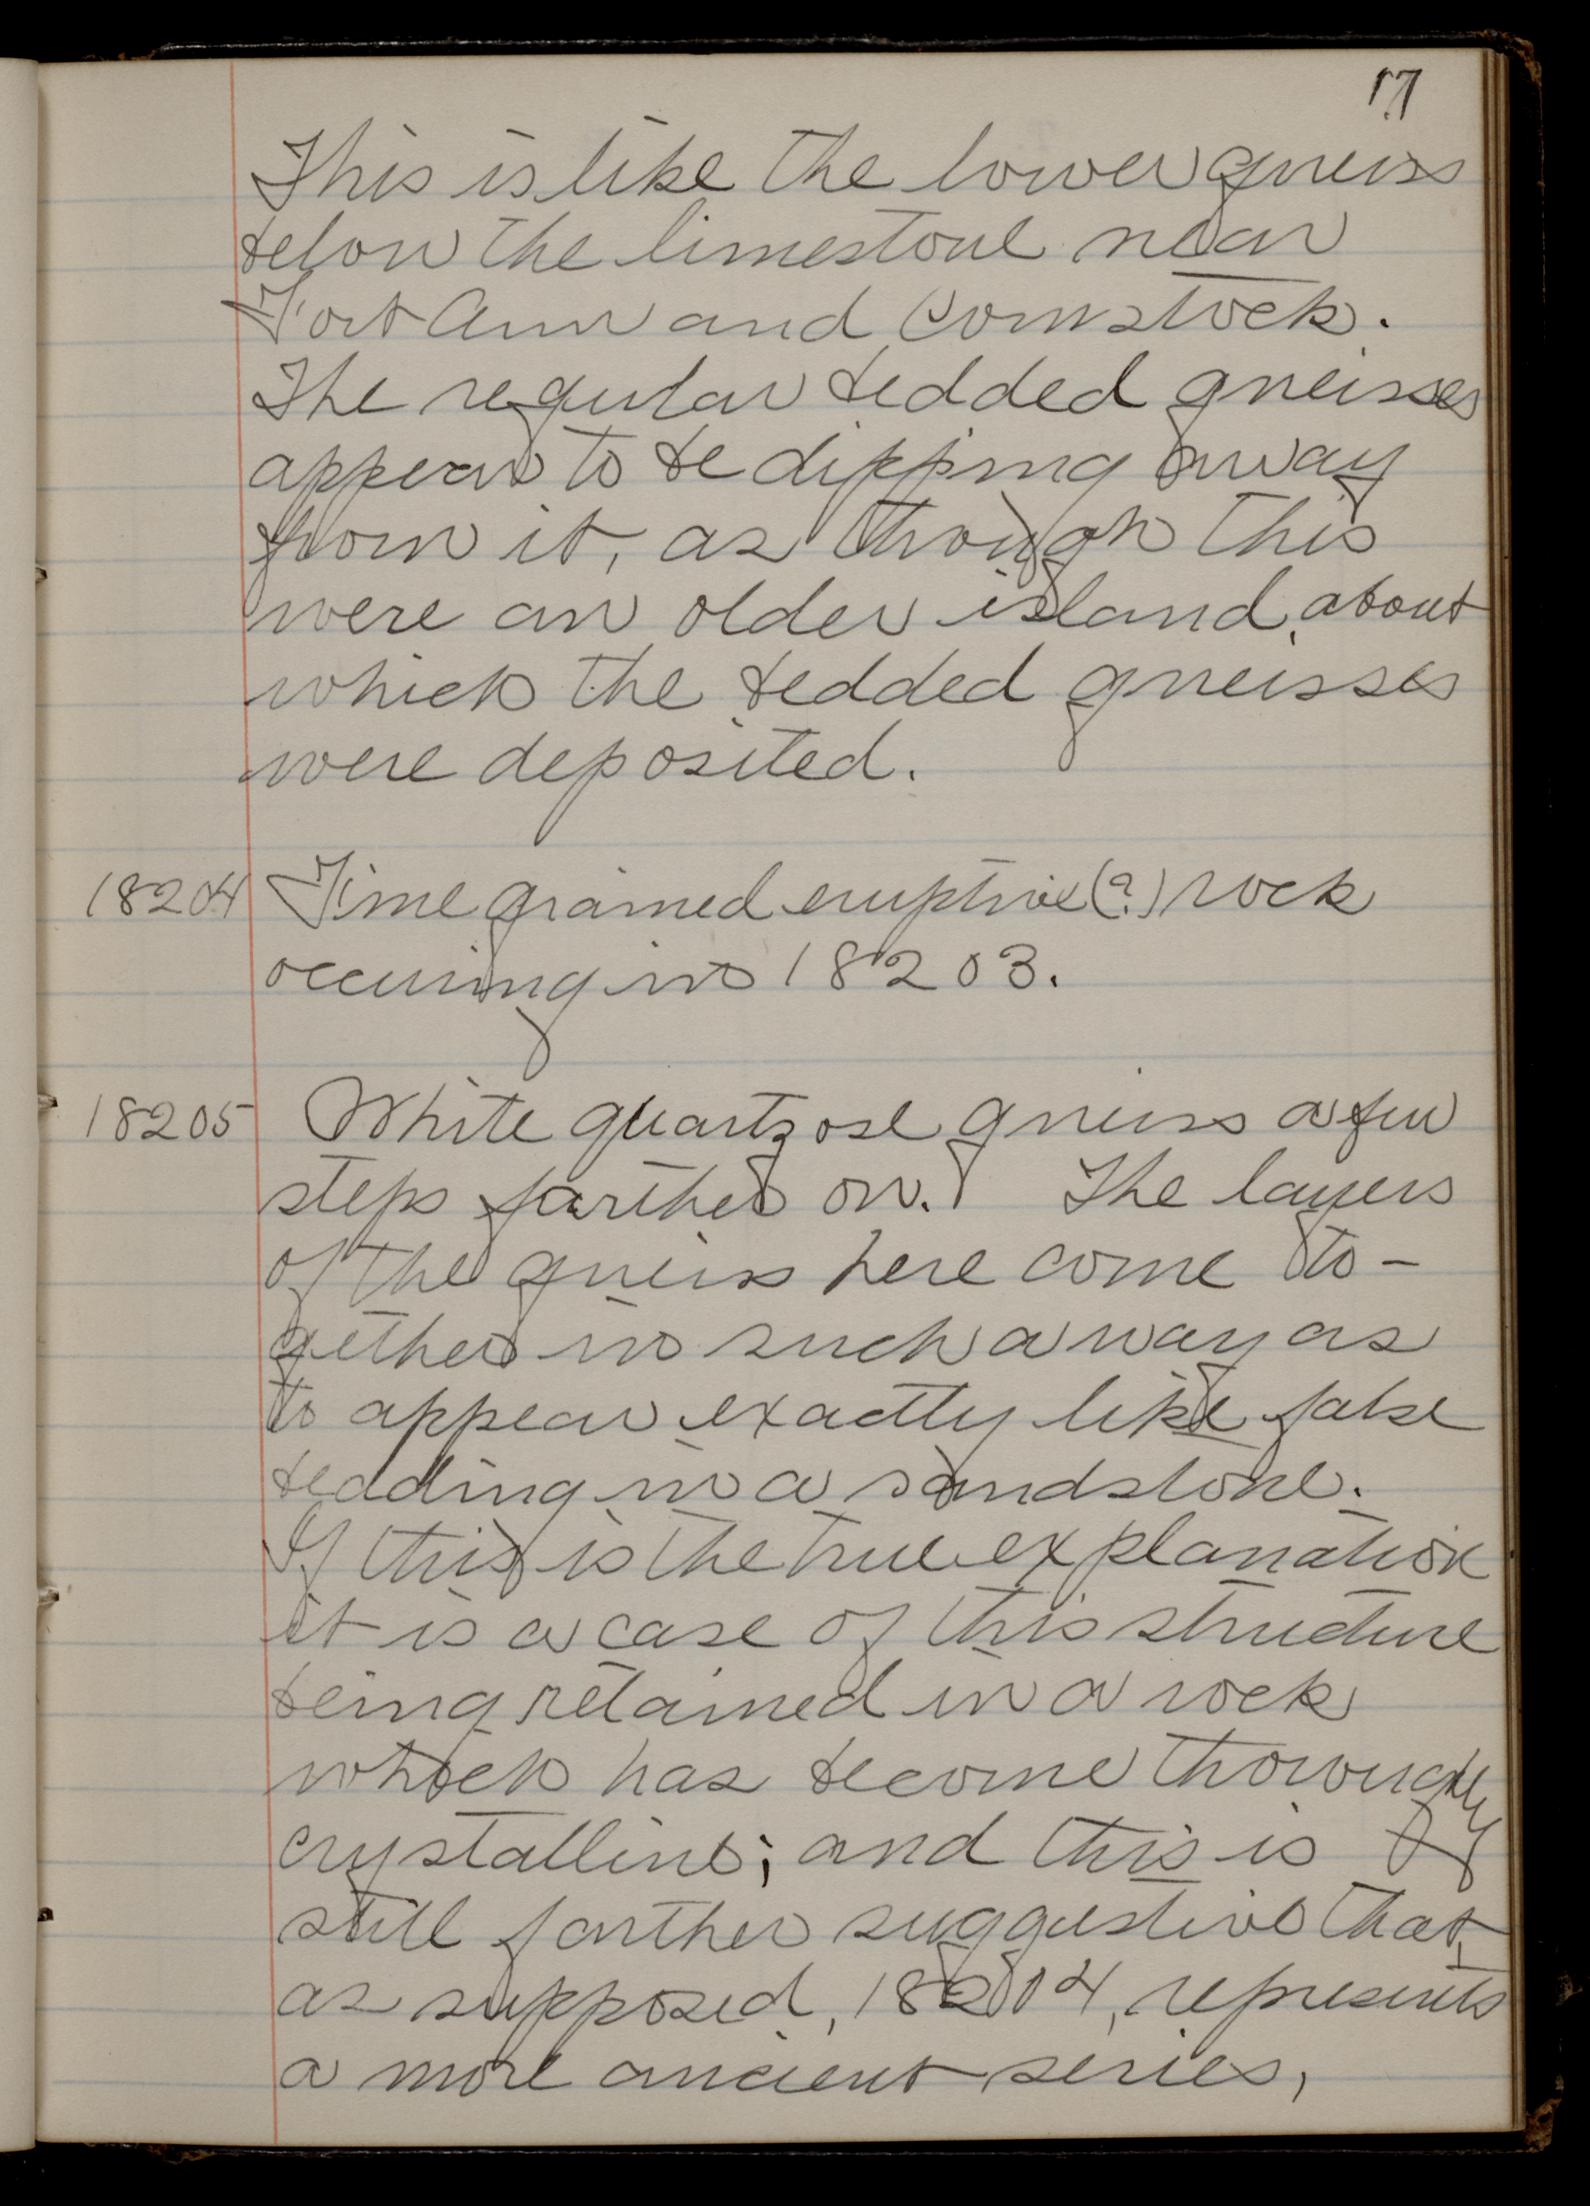 17
This is like the lower gneiss
below the limestone near
Fort Ann and Comstock.
The regular bedded gneisses
appear to be dipping away
from it, as though this
were an older island, about
which the bedded gneisses
were deposited.
18204 Fine grained eruptive (?) rock
occuring in 18203.
18205 White quartzose gneiss a few
steps farther on. The layers
of the gneiss here come to-
gether in such a way as
to appear exactly like false
bedding in a sandstone.
If this is the true explanation
it is a case of this structure
being retained in a rock
which has become thoroughly
crystalline; and this is
still farther suggestive that,
as supposed, 18204, represents
a more ancient series,